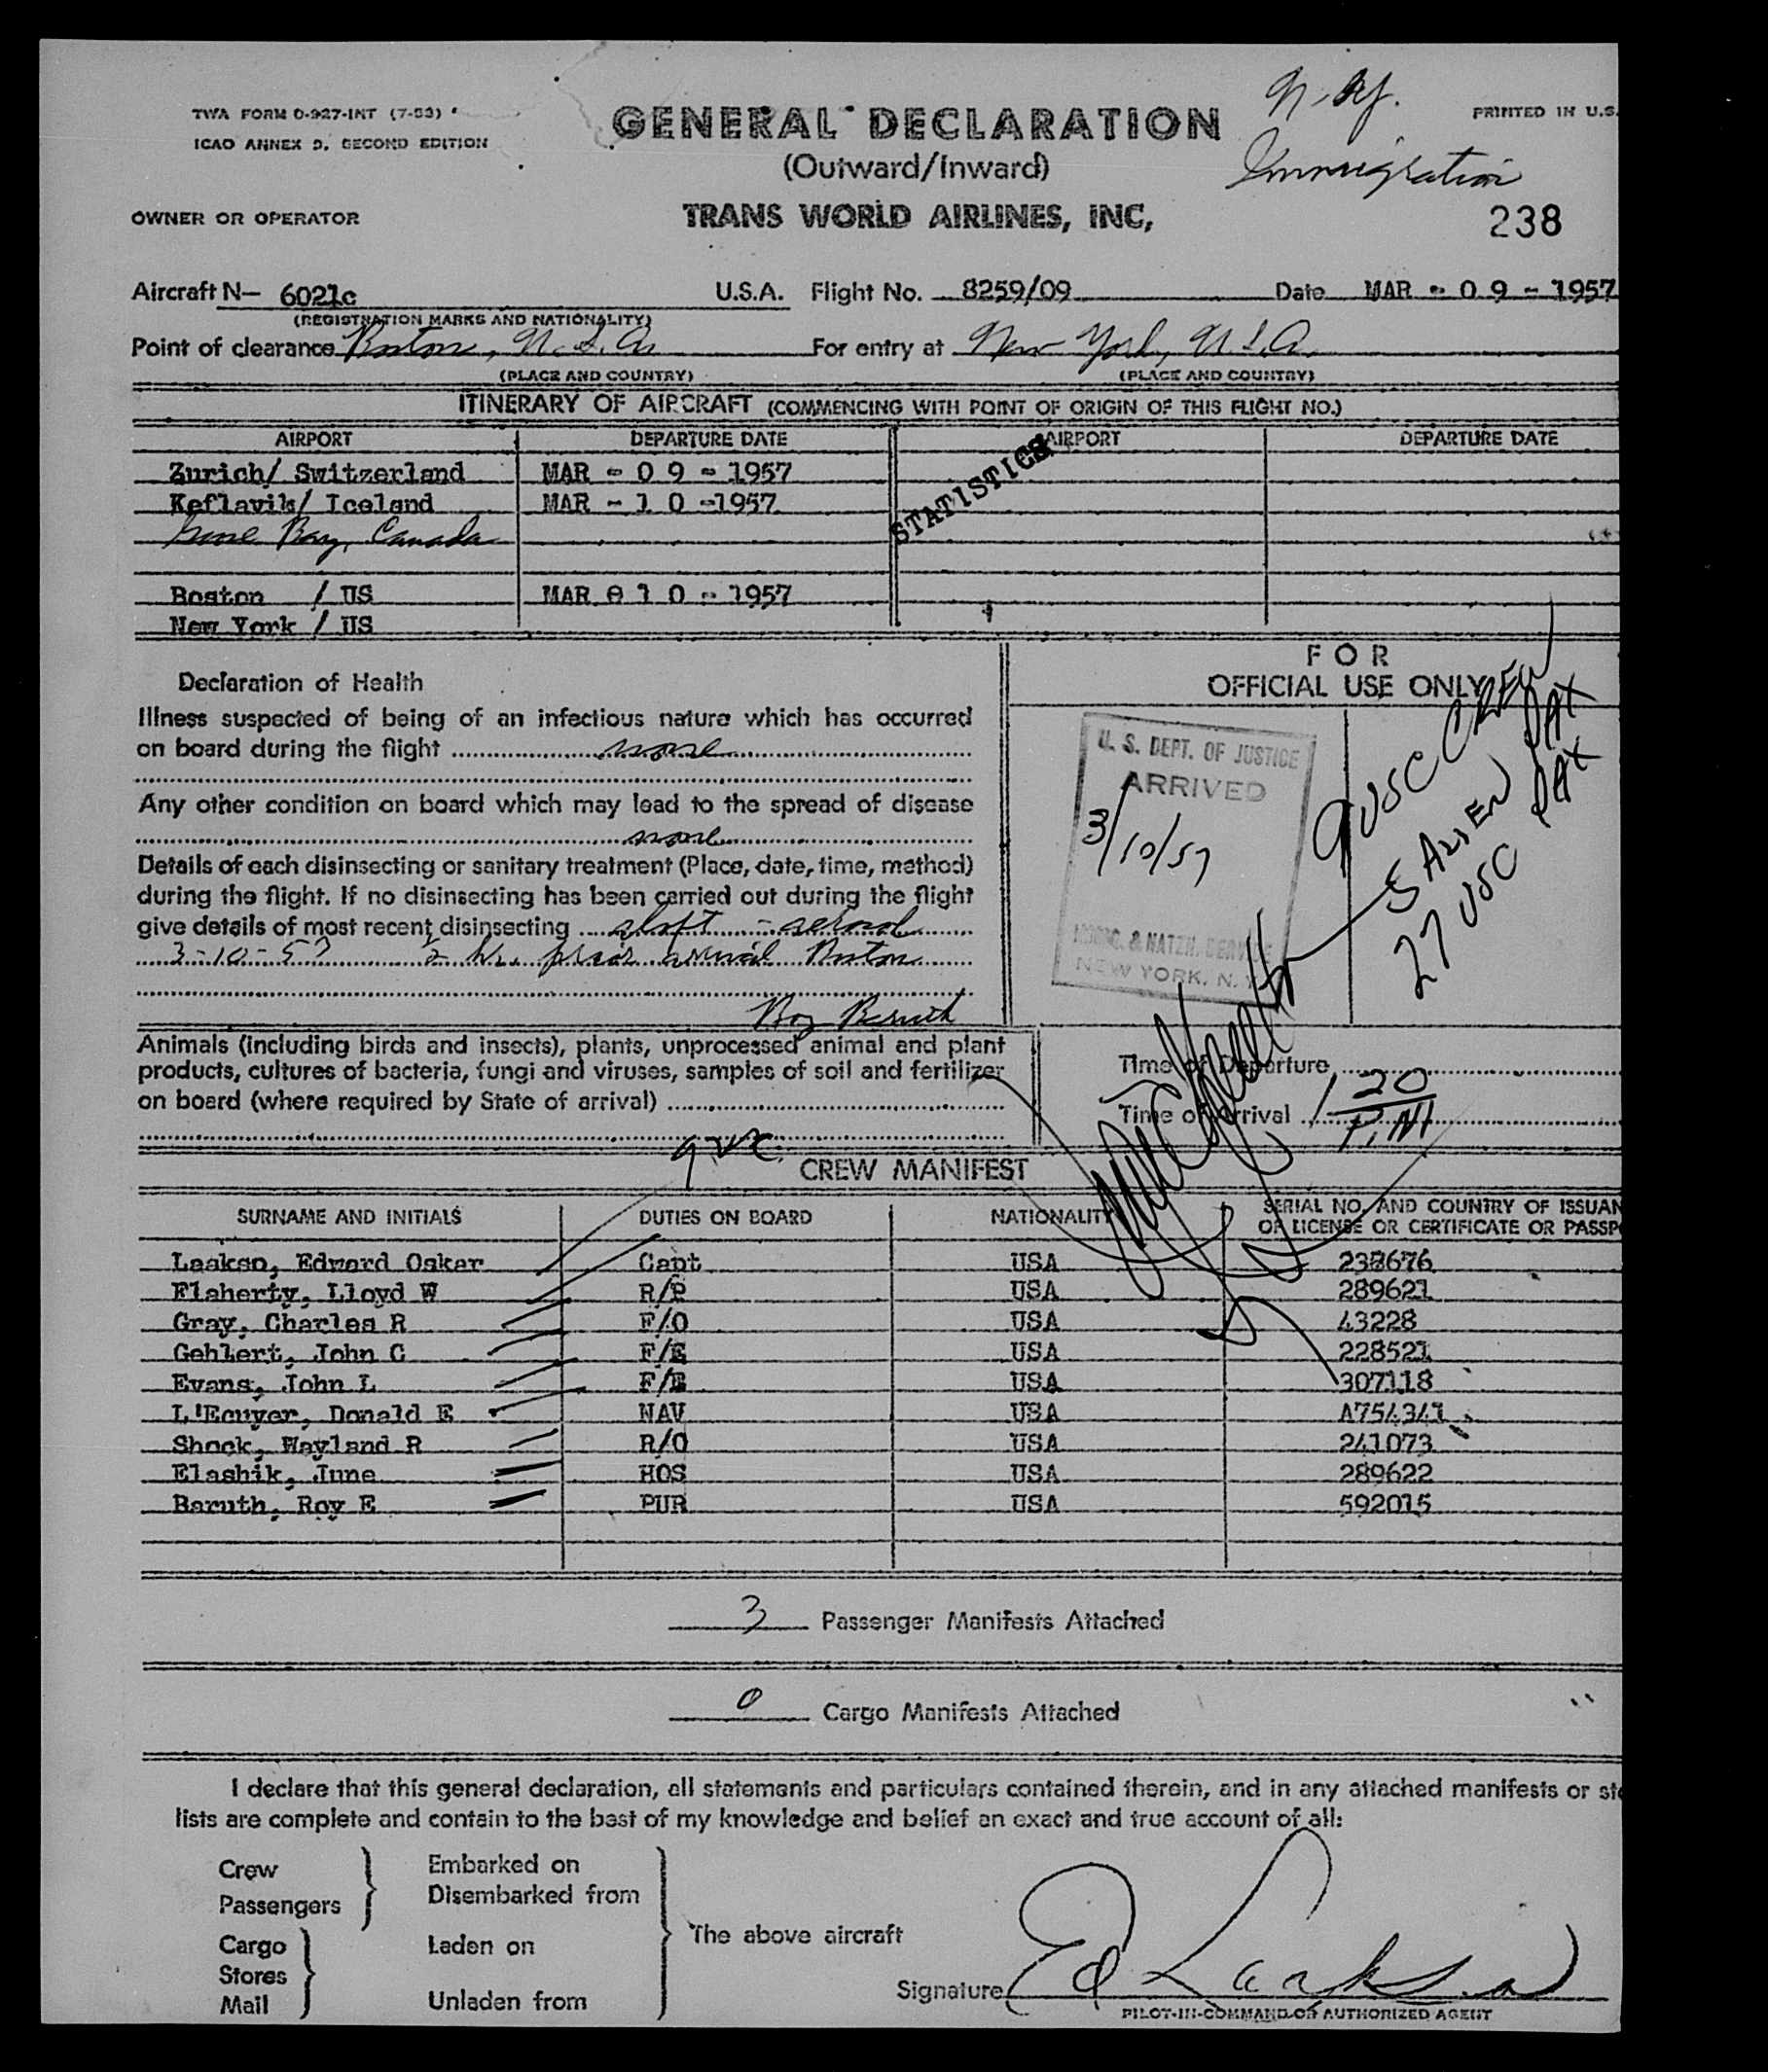 N.Y.
TWA FORM O-927-INT (7-53)
GENERAL DECLARATION
PRINTED IN U.S.
ICAO ANNEX 9, SECOND EDITION
(Outward/Inward)
Immigration
OWNER OR OPERATOR
TRANS WORLD AIRLINES, INC,
238
Aircraft N– 6021c U.S.A. Flight No. 8259/09 Date MAR - 09 - 1957
(REGISTRATION MARKS AND NATIONALITY)
Point of clearance Boston, U.S.A. For entry at New York, U.S.A.
(PLACE AND COUNTRY) (PLACE AND COUNTRY)
ITINERARY OF AIRCRAFT (COMMENCING WITH POINT OF ORIGIN OF THIS FLIGHT NO.)
AIRPORT DEPARTURE DATE AIRPORT DEPARTURE DATE
STATISTICS
Zurich/ Switzerland MAR - 09 - 1957
Keflavik/ Iceland MAR - 10 -1957
Goose Bay, Canada
Boston / US MAR 010 - 1957
New York / US
Declaration of Health
Illness suspected of being of an infectious nature which has occurred
on board during the flight none
Any other condition on board which may lead to the spread of disease
none
Details of each disinsecting or sanitary treatment (Place, date, time, method)
during the flight. If no disinsecting has been carried out during the flight
give details of most recent disinsecting aerosol
3-10-57 ½ hr. prior arrival Boston
Roy Baruth
FOR
OFFICIAL USE ONLY
U. S. DEPT. OF JUSTICE
ARRIVED
3/10/57
IMMIG. & NATZN. SERVICE
NEW YORK, N. Y.
9 USC CREW
5 ALIEN PAX
27 USC PAX
Animals (including birds and insects), plants, unprocessed animal and plant
products, cultures of bacteria, fungi and viruses, samples of soil and fertilizer
on board (where required by State of arrival)
Time of Departure
Time of Arrival 1 20 P.M
CREW MANIFEST
SURNAME AND INITIALS DUTIES ON BOARD NATIONALITY SERIAL NO. AND COUNTRY OF ISSUAN
OF LICENSE OR CERTIFICATE OR PASSP
Laakso, Edward Oskar Capt USA 238676
Flaherty, Lloyd W R/P USA 289621
Gray, Charles R F/O USA 43228
Gehlert, John C F/E USA 228521
Evans, John L F/E USA 307118
L'Ecuyer, Donald E NAV USA A754341
Shook, Wayland R R/O USA 241073
Elashik, June HOS USA 289622
Baruth, Roy E PUR USA 592015
3 Passenger Manifests Attached
0 Cargo Manifests Attached
I declare that this general declaration, all statements and particulars contained therein, and in any attached manifests or sto
lists are complete and contain to the best of my knowledge and belief an exact and true account of all:
Crew
Passengers
Embarked on
Disembarked from
Cargo
Stores
Mail
Laden on
Unladen from
The above aircraft
Signature Ed Laakso
PILOT-IN-COMMAND OR AUTHORIZED AGENT